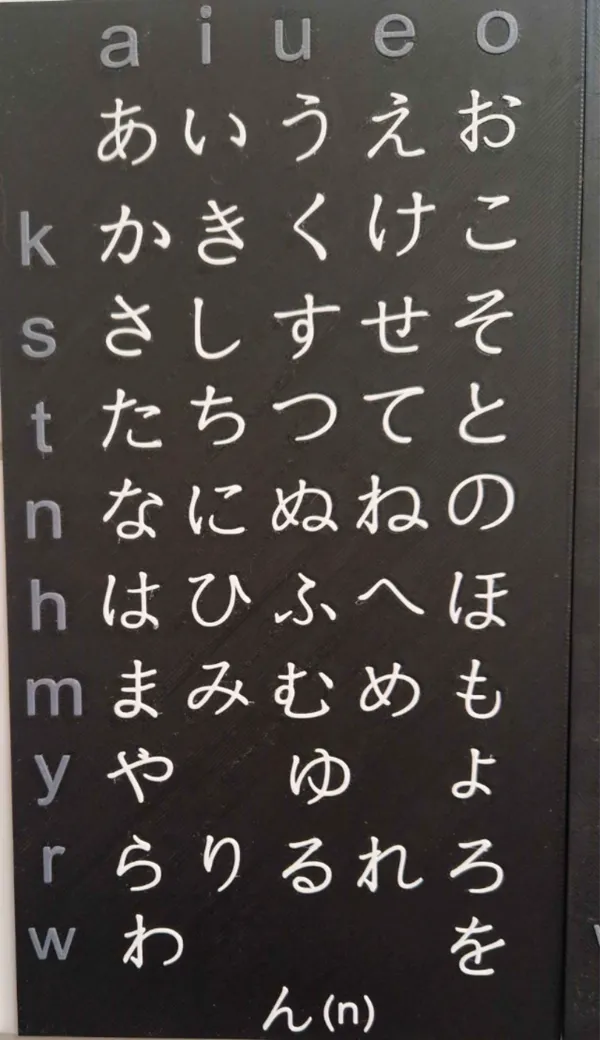 a i u e o
あ い う え お
k か き く け こ
s さ し す せ そ
t た ち つ て と
n な に ぬ ね の
h は ひ ふ へ ほ
m ま み む め も
y や ゆ よ
r ら り る れ ろ
w わ を
ん (n)